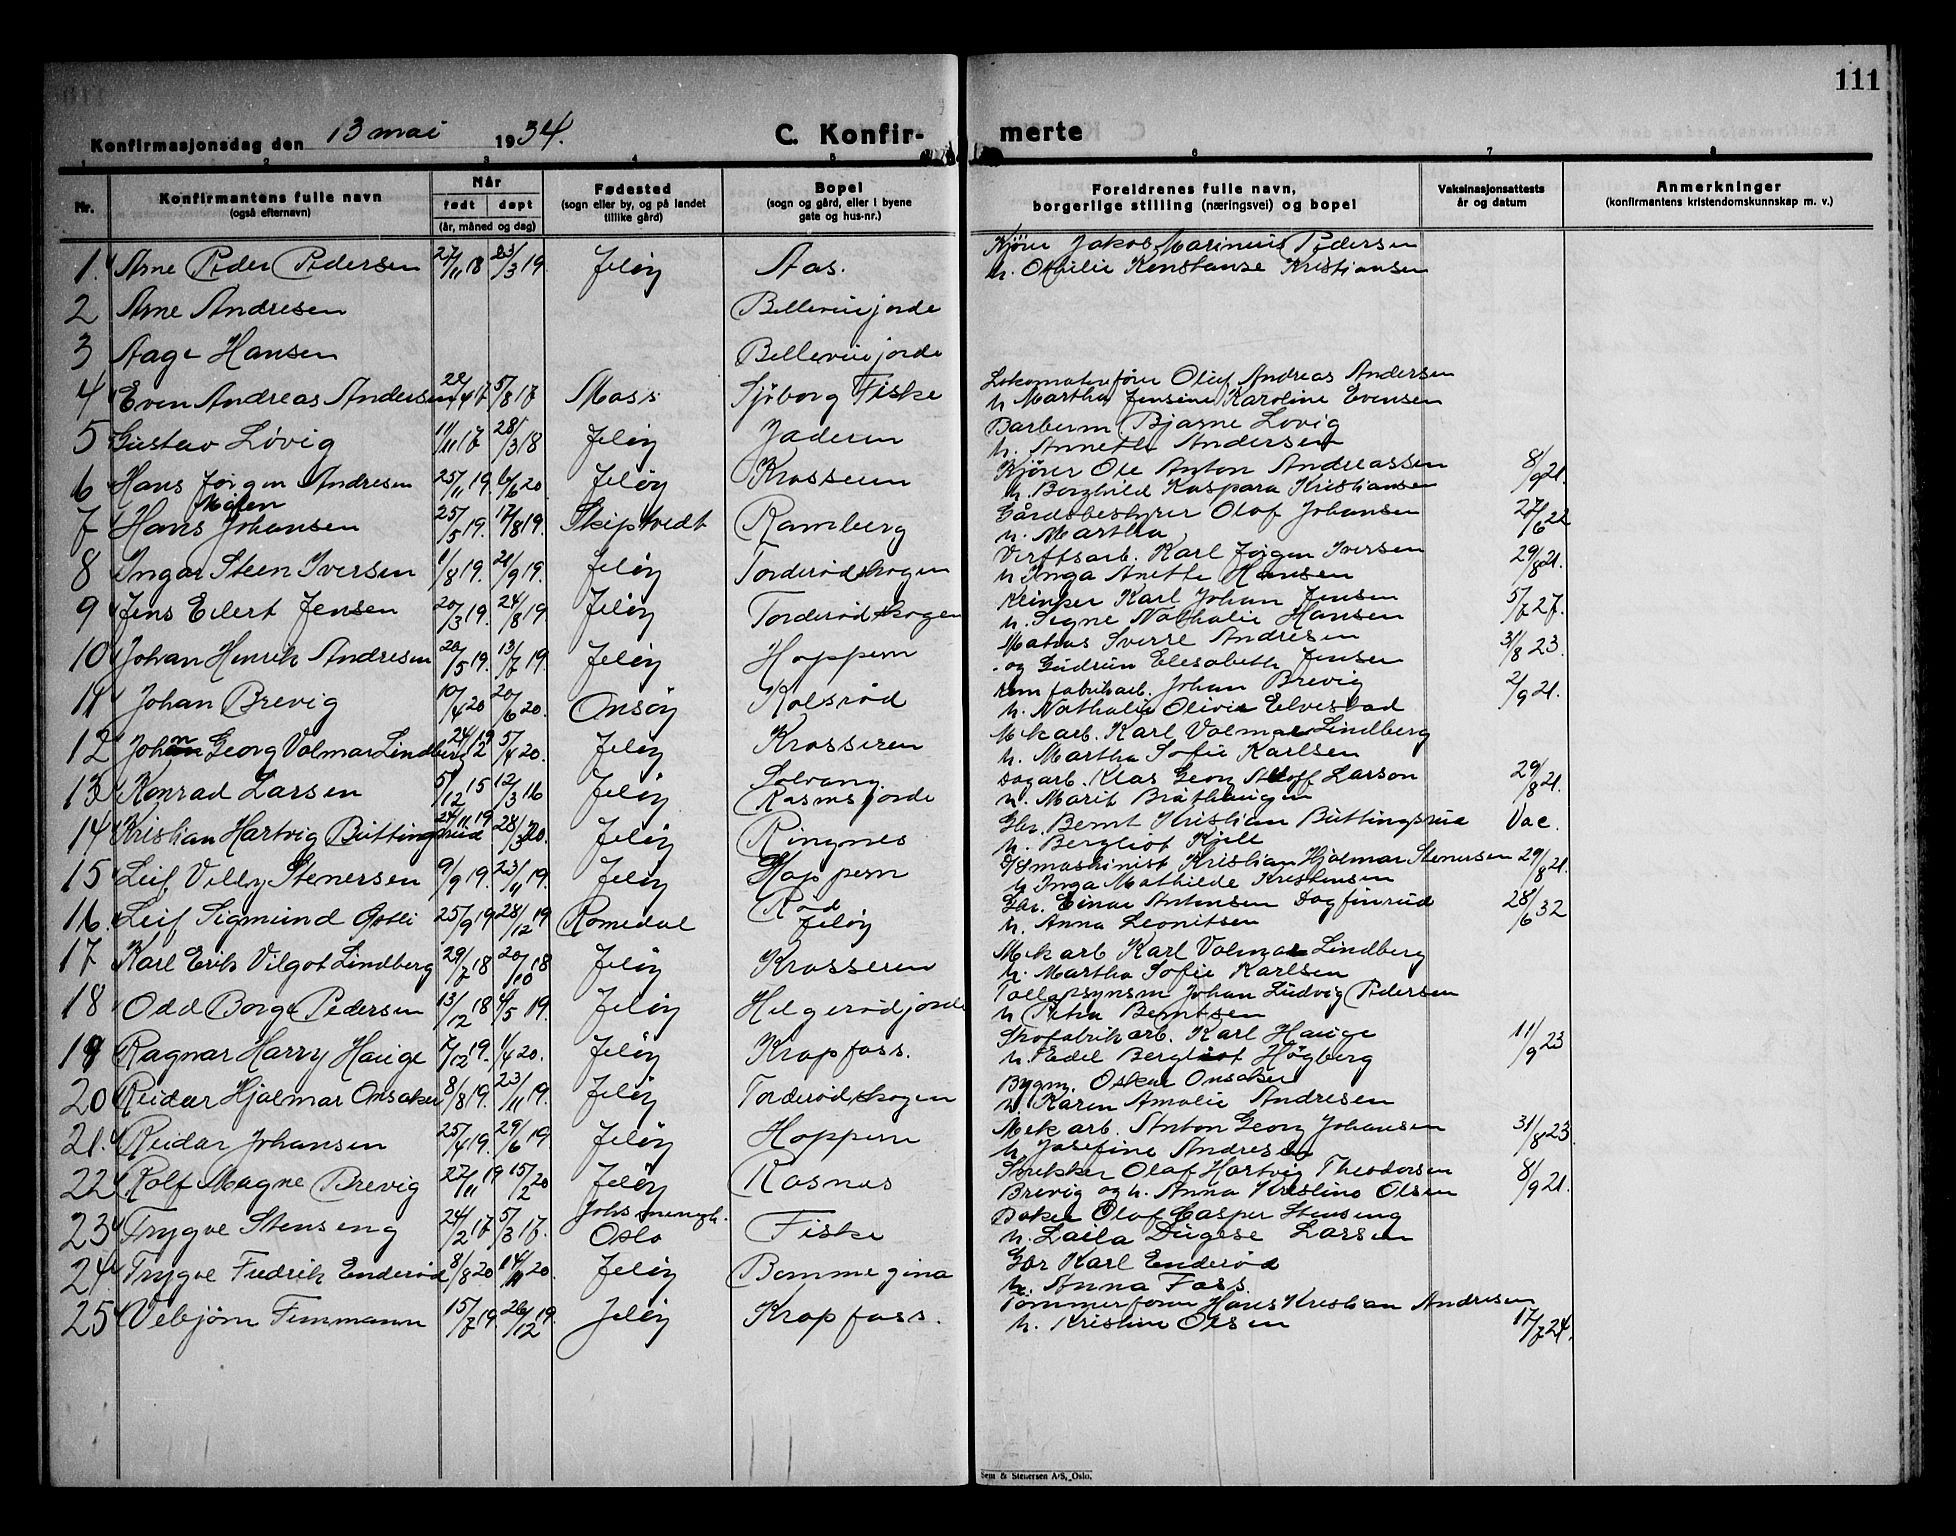 111
Konfirmasjonsdag den 13 mai 1934. C. Konfir- merte
1 2 3 4 5 6 7 8
Nr. Konfirmantens fulle navn (også efternavn) Når født døpt (år, måned og dag) Fødested (sogn eller by, og på landet tillike gård) Bopel (sogn og gård, eller i byene gate og hus-nr.) Foreldrenes fulle navn, borgerlige stilling (næringsvei) og bopel Vaksinasjonsattests år og datum Anmerkninger (konfirmantens kristendomskunnskap m. v.)
1. Arne Peder Pedersen 27/11 18 23/3 19 Jeløy Aas. Kjører Jakob Marinius Pedersen
h. Othilie Konstanse Kristiansen
2 Arne Andresen Bellevuejorde
3 Aage Hansen Bellevuejorde
4 Even Andreas Andersen 22/4 17 5/8 17 Moss Sjøborg Fiske Lokomotivfører Olaf Andreas Andersen
h Martha Jensine Karoline Evensen
5 Gustav Løvig 11/11 17 28/3 18 Jeløy Jaderen Barberm. Bjarne Lovig
h. Annette Andersen
6 Hans Jørgen Andresen 25/11 19. 6/6 20 Jeløy Krosseren Kjører Ole Anton Andreassen 8/9 21.
h. Borghild Kaspara Kristiansen
7 Hans Johansen 25/5 19. 17/8 19. Skiptvedt Ramberg Gårdsbestyrer Olaf Johansen 27/6 22
h. Martha
8 Ingar Steen Iversen 1/8 19. 21/9 19. Jeløy Torderødskogen Verftsarb. Karl Jørgen Iversen 29/8 21.
h Inga Anette Hansen
9 Jens Eilert Jensen 20/3 19. 24/8 19 Jeløy Torderødskogen Klinker Karl Johan Jensen 5/7 27.
h. Signe Nathalie Hansen
10 Johan Henrik Andresen 20/5 19. 13/7 19. Jeløy Hoppern Matros Sverre Andresen 31/8 23.
og Gudrun Elisabeth Jensen
11 Johan Brevig 10/4 20 20/6 20. Onsøy Kolsrød Kem fabrikarb. Johan Brevig 2/9 21.
h. Nathalie Olivie Elvestad
12 Johan Georg Valmar Lindberg 24/12 19 5/4 20. Jeløy Krosseren Mek arb. Karl Valmar Lindberg
h. Martha Sofie Karlsen
13 Konrad Larsen 5/12 15 12/3 16 Jeløy Solvang Rasmsjorde Dagarb. Klas Georg Adloff Larson 29/8 21.
h. Marit
14 Kristian Hartvig Buttingsrud 24/11 19 28/3 20. Jeløy Ringnes Gbr. Bernt Kristian Buttingsrud Vac.
h. Bergliot Kjelt
15 Leif Villy Stenersen 9/9 19. 23/11 19. Jeløy Hoppern D/S maskinist Kristian Hjalmar Stenersen 29/8 21.
h Inga Mathilde Kristensen
16. Leif Sigmund Ostli 25/9 19 28/12 19 Romedal Rød Jeløy Gbr. Einar Antonsen Dagfinrud 28/6 32
h. Anna Leonitsen
17 Karl Erik Vilgot Lindberg 29/7 18 20/10 18 Jeløy Krosseren Mek arb Karl Valmar Lindberg
h. Martha Sofie Karlsen
18 Odd Borge Pedersen 13/12 18 4/5 19. Jeløy Helgerødjorde Tollopsynsm Johan Ludvig Pedersen
h Petra Berntsen
19 Ragnar Harry Hauge 7/12 19. 4/4 20. Jeløy Krapfoss. Skofabrikarb. Karl Hauge 11/9 23
h. Edel Bergliot Högberg
20 Reidar Hjalmar Onsaker 8/8 19. 23/11 19. Jeløy Torderødskogen Bygm. Oskar Onsaker
h. Karen Amalie Andresen
21. Reidar Johansen 25/4 19. 29/6 19. Jeløy Hoppern Mek arb. Anton Georg Johansen 31/8 23.
h Josefine Andresen
22 Rolf Magne Brevig 27/11 19 15/2 20 Jeløy Rosnes Strekker Olaf Hartvig Theodorsen 8/9 21.
Brevig og h. Anna Kristine Olsen
23 Trygve Stenseng 24/2 17 5/3 17. Johs menigh. Oslo Fiske Baker Olaf Casper Stenseng
h. Laila Dugese Larsen
24 Trygve Fredrik Enderød 8/8 20 14/11 20. Jeløy Bommegina Gbr Karl Enderød
h. Anna Foss.
25 Vebjørn Finmann 15/7 19 26/12 19 Jeløy Krapfoss. Tømmerform Hans Kristian Andresen
h. Kristine Olsen 17/7 24.
Sem & Stenersen A/S, Oslo.